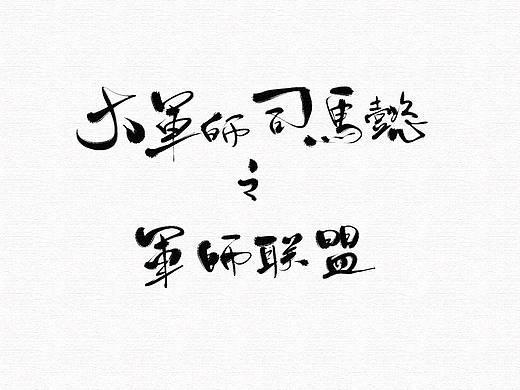 大軍師司馬懿
之
軍師联盟